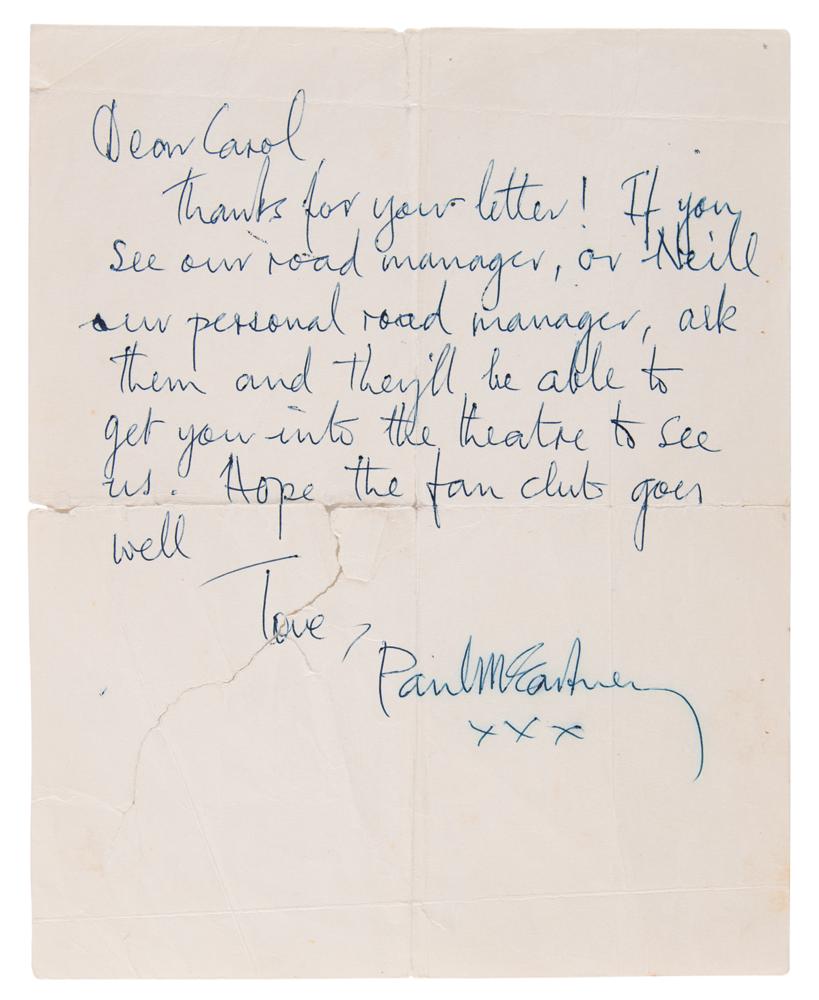 Dear Carol,
Thanks for your letter! If you
see our road manager, or Neill
our personal road manager, ask
them and they'll be able to
get you into the theatre to see
us. Hope the fan club goes
well
Love,
Paul McCartney
xxx